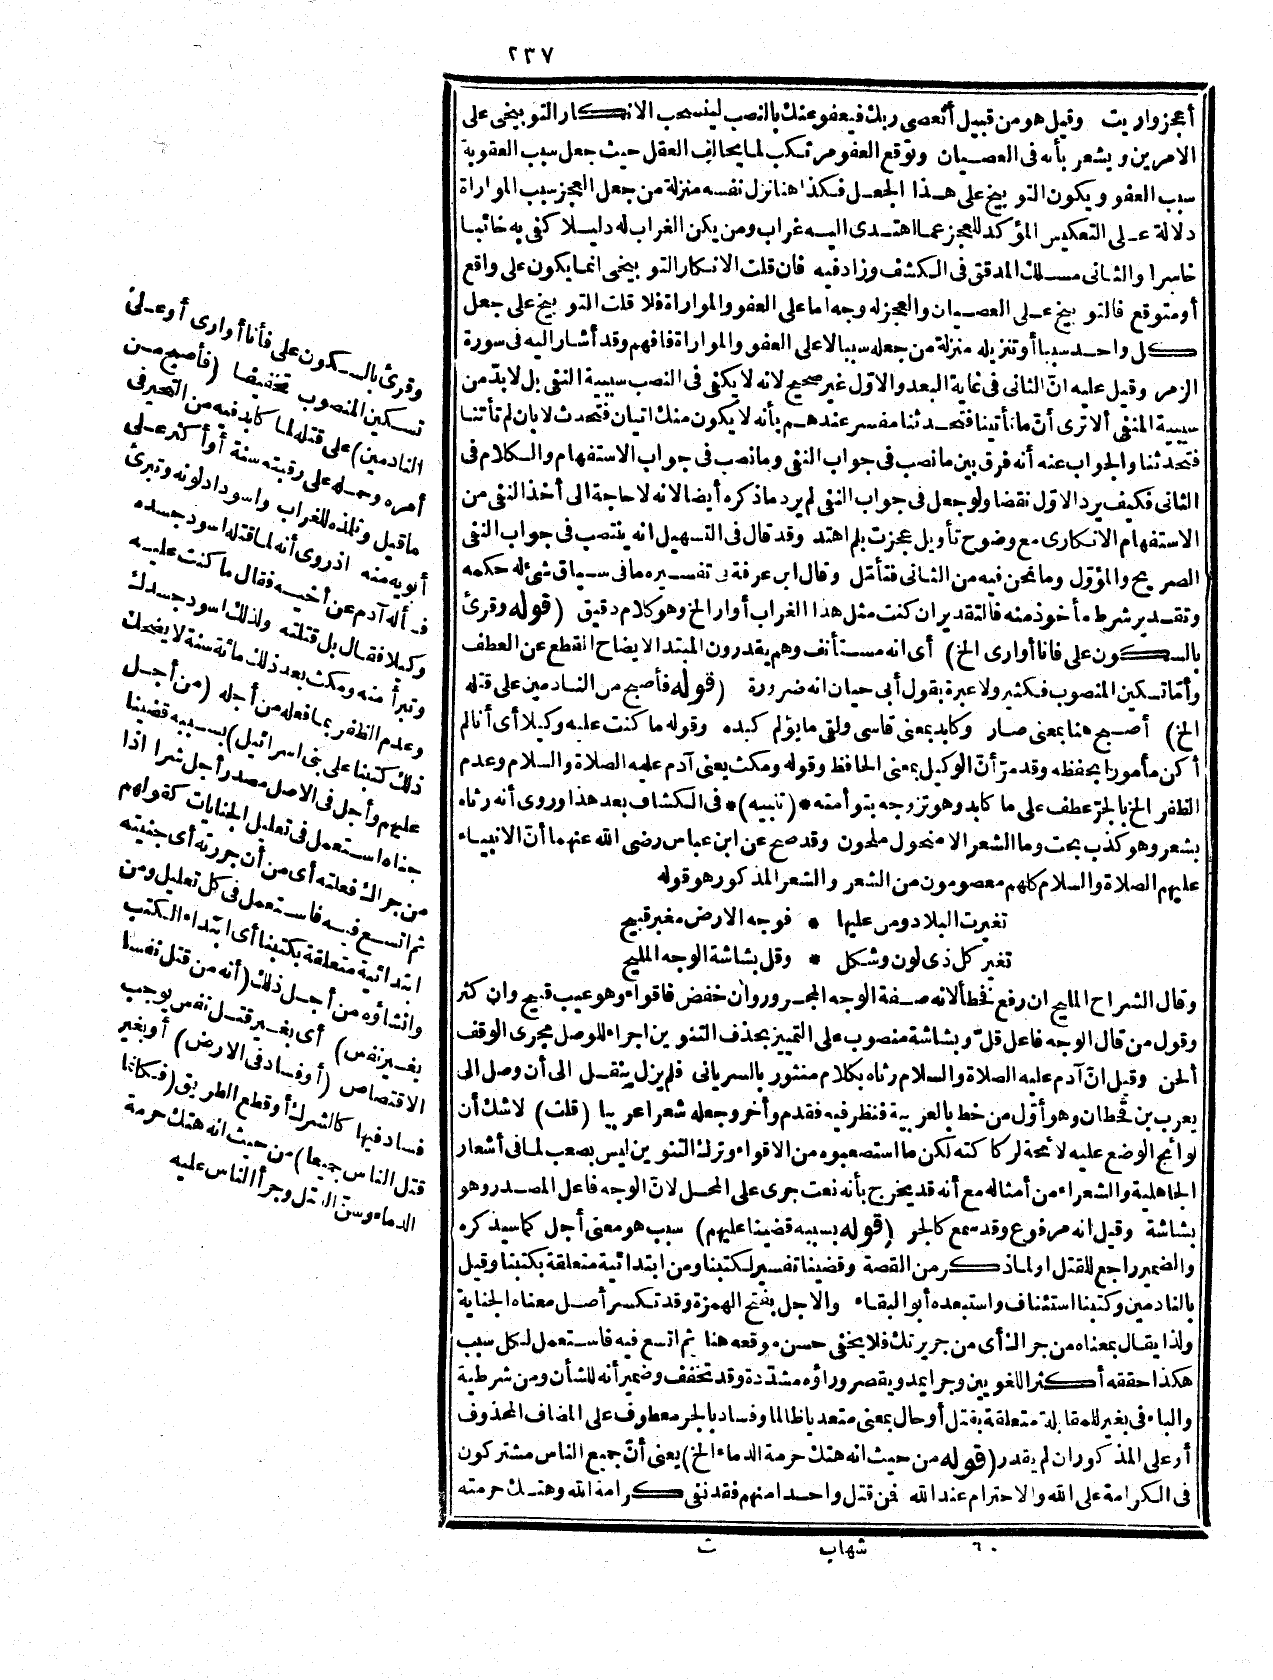 ٢٣٧
أعجز واريت وقيل هو من قبيل أتعصى ربك فيعفو عنك بالنصب لينسحب الانكار التوبيخى على
الامرين ويشعر بأنه فى العصيان وتوقع العفو مرتكب لما يخالف العقل حيث جعل سبب العقوبة
سبب العفو ويكون التوبيخ على هذا الجعل فكذا هنا نزل نفسه منزلة من جعل العجز سبب المواراة
دلالة على التعكيس المؤكد للعجز عما اهتدى اليه غراب ومن يكن الغراب له دليلا كفى به خائبا
خاسرا والثانى مسلك المدقق فى الكشف وزاد فيه فان قلت الانكار التوبيخى انما يكون على واقع
أو متوقع فالتوبيخ على العصيان والعجز له وجه اما على العفو والمواراة فلا قلت التوبيخ على جعل
كل واحد سببا أو تنزيله منزلة من جعله سببا لا على العفو والمواراة فافهم وقد أشار اليه فى سورة
الزمر وقيل عليه انّ الثانى فى غاية البعد والاوّل غير صحيح لانه لا يكفى فى النصب سببية النفى بل لا بدّ من
سببية المنفى ألا ترى أنّ ما تأتينا فتحدثنا مفسر عندهم بأنه لا يكون منك اتيان فتحدث لا بان لم تأتنا
فتحدثنا والجواب عنه أنه فرق بين ما نصب فى جواب النفى وما نصب فى جواب الاستفهام والكلام فى
الثانى فكيف يرد الاوّل نقضا ولو جعل فى جواب النفى لم يرد ما ذكره أيضا لانه لا حاجة الى أخذ النفى من
الاستفهام الانكارى مع وضوح تأويل عجزت بلم اهتد وقد قال فى التسهيل انه ينتصب فى جواب النفى
الصريح والمؤوّل وما نحن فيه من الثانى فتأمّل وقال ابن عرفة فى تفسيره ما فى سياق شئ له حكمه
وتقدير شرط مأخوذ منه فالتقدير ان كنت مثل هذا الغراب أوار الخ وهو كلام دقيق (قوله وقرئ
بالسكون على فانا أوارى الخ) أى انه مستأنف وهم يقدرون المبتدا لايضاح انقطع عن العطف
وأمّا تسكين المنصوب فكثير ولا عبرة بقول أبى حيان انه ضرورة (قوله فأصبح من النادمين على قتله
الخ) أصبح هنا بمعنى صار وكابد بمعنى قاسى ولقى ما يؤلم كبده وقوله ما كنت عليه وكيلا أى أنا لم
أكن مأمورا بحفظه وقد مرّ أنّ الوكيل بمعنى الحافظ وقوله ومكث يعنى آدم عليه الصلاة والسلام وعدم
الظفر الخ بالجرّ عطف على ما كابد وهو تزوجه بتوأمته *(تنبيه)* فى الكشاف بعد هذا وروى أنه رثاه
بشعر وهو كذب بحت وما الشعر الا منحول ملحون وقد صح عن ابن عباس رضى الله عنهما أنّ الانبياء
عليهم الصلاة والسلام كلهم معصومون من الشعر والشعر المذكور هو قوله
تغيرت البلاد ومن عليها * فوجه الارض مغبر قبيح
تغير كل ذى لون وشكل * وقل بشاشة الوجه المليح
وقال الشراح المليح ان رفع فخطأ لانه صفة الوجه المجرور وان خفض فاقواء وهو عيب قبيح وان كثر
وقول من قال الوجه فاعل قلّ وبشاشة منصوب على التمييز بحذف التنوين اجراء للوصل مجرى الوقف
ألحن وقيل انّ آدم عليه الصلاة والسلام رثاه بكلام منثور بالسريانى فلم يزل ينقل الى أن وصل الى
يعرب بن قحطان وهو أوّل من خط بالعربية فنظر فيه فقدم وأخر وجعله شعرا عربيا (قلت) لا شك أن
لوائح الوضع عليه لائحة لركاكته لكن ما استصعبوه من الاقواء وترك التنوين ليس بصعب لما فى أشعار
الجاهلية والشعراء من أمثاله مع أنه قد يخرج بأنه نعت جرى على المحل لانّ الوجه فاعل المصدر وهو
بشاشة وقيل انه مرفوع وقد سمع كالجر (قوله بسببه قضينا عليهم) سبب هو معنى أجل كما سيذكره
والضمير راجع للقتل او لما ذكر من القصة وقضينا تفسير لكتبنا ومن ابتدائية متعلقة بكتبنا وقيل
بالنادمين وكتبنا استئناف واستبعده أبو البقاء والاجل بفتح الهمزة وقد تكسر أصل معناه الجناية
ولذا يقال بمعناه من جراك أى من جريرتك فلا يخفى حسن موقعه هنا ثم اتسع فيه فاستعمل لكل سبب
هكذا حققه أكثر اللغويين وجرا يمد ويقصر وراؤه مشدّدة وقد تخفف وضمير أنه للشأن ومن شرطية
والباء فى بغير للمقابلة متعلقة بقتل أو حال بمعنى متعديا ظالما وفساد بالجر معطوف على المضاف المحذوف
أو على المذكور ان لم يقدر (قوله من حيث انه هتك حرمة الدماء الخ) يعنى أنّ جميع الناس مشتركون
فى الكرامة على الله والاحترام عند الله فمن قتل واحدا منهم فقد نفى كرامة الله وهتك حرمته
وقرئ بالسكون على فأنا أوارى أو على
تسكين المنصوب تخفيفا (فأصبح من
النادمين) على قتله لما كابد فيه من التحير فى
أمره وحمله على رقبته سنة أو أكثر على
ما قيل وتلمذه للغراب واسوداد لونه وتبرئ
أبويه منه اذ روى أنه لما قتله اسود جسده
فسأله آدم عن أخيه فقال ما كنت عليه
وكيلا فقال بل قتلته ولذلك اسود جسدك
وتبرأ منه ومكث بعد ذلك مائة سنة لا يضحك
وعدم الظفر بما فعله من أجله (من أجل
ذلك كتبنا على بنى اسرائيل) بسببه قضينا
عليهم وأجل فى الاصل مصدر أجل شرا اذا
جناه استعمل فى تعليل الجنايات كقولهم
من جراك فعلته أى من أن جررته أى جنيته
ثم اتسع فيه فاستعمل فى كل تعليل ومن
ابتدائية متعلقة بكتبنا أى ابتداء الكتب
وانشاؤه من أجل ذلك (أنه من قتل نفسا
بغير نفس) أى بغير قتل نفس يوجب
الاقتصاص (أو فساد فى الارض) أو بغير
فساد فيها كالشرك أو قطع الطريق (فكانما
قتل الناس جميعا) من حيث انه هتك حرمة
الدماء وسنّ القتل وجرأ الناس عليه
٦٠ شهاب ت